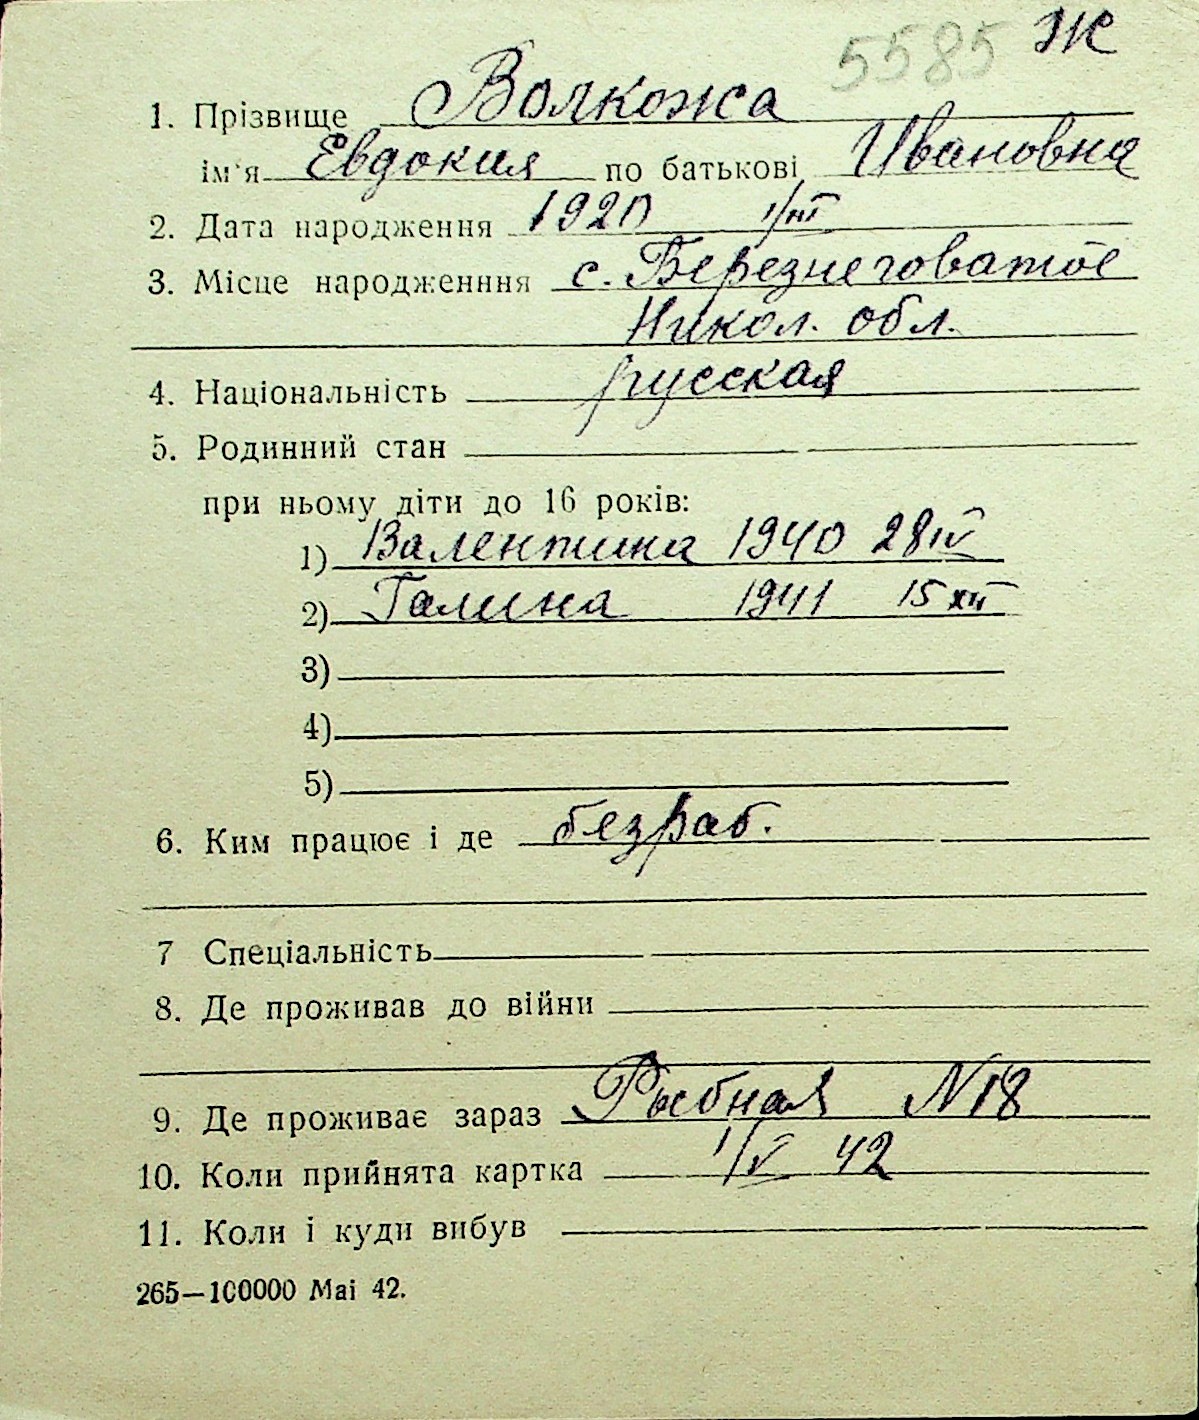 5585 Ж
1. Прізвище Волкожа
ім'я Евдокия по батькові Ивановна
2. Дата народження 1920 1/III
3. Місце народженння с. Березнеговатое
Никол. обл.
4. Національність русская
5. Родинний стан
при ньому діти до 16 років:
1) Валентина 1940 28 IV
2) Галина 1941 15 XII
3)
4)
5)
6. Ким працює і де безраб.
7 Спеціальність
8. Де проживав до війни
9. Де проживає зараз Рыбная N 18
10. Коли прийнята картка 1/V 42
11. Коли і куди вибув
265—100000 Маі 42.